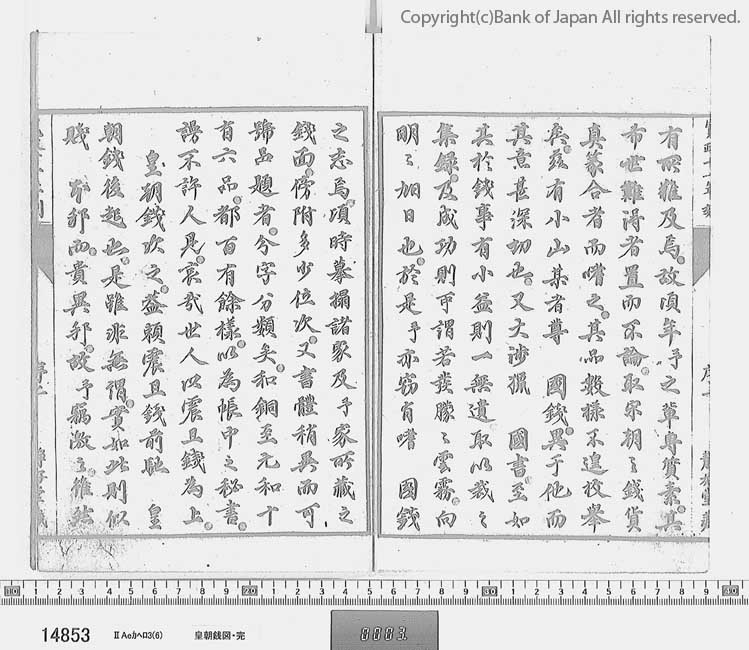 Copyright(c)Bank of Japan All rights reserved.
有所難及焉故頃年予之輩専賞素其
布世難得者置而不論取宋朝之銭貨
真篆合者而嗜之其品数様不遑枚挙
矣茲有小山某者尊 国銭異于他而
其意甚深切也又大渉猟 国書至如
其於銭事有小益則一無遺取以裁之
集録及成功則可謂若発朦之雲霧向
明之旭日也於是予亦窃有嗜 国銭
之志焉頃時募搨諸家及予家所蔵之
銭面傍附多少位次又書體稍異而可
號品題者今字分類矣和銅至元和十
有六品都百有餘様以為帳中之秘書
謾不許人見哀哉世人以震旦銭為上
皇朝銭次之益頼震旦銭前馳 皇
朝銭後起也是雖非無謂實如此則似
賤 本邦而貴異邦故予窃激之雖然
14853
ⅡAeカヘロ3(6)
皇朝銭図・完
0003